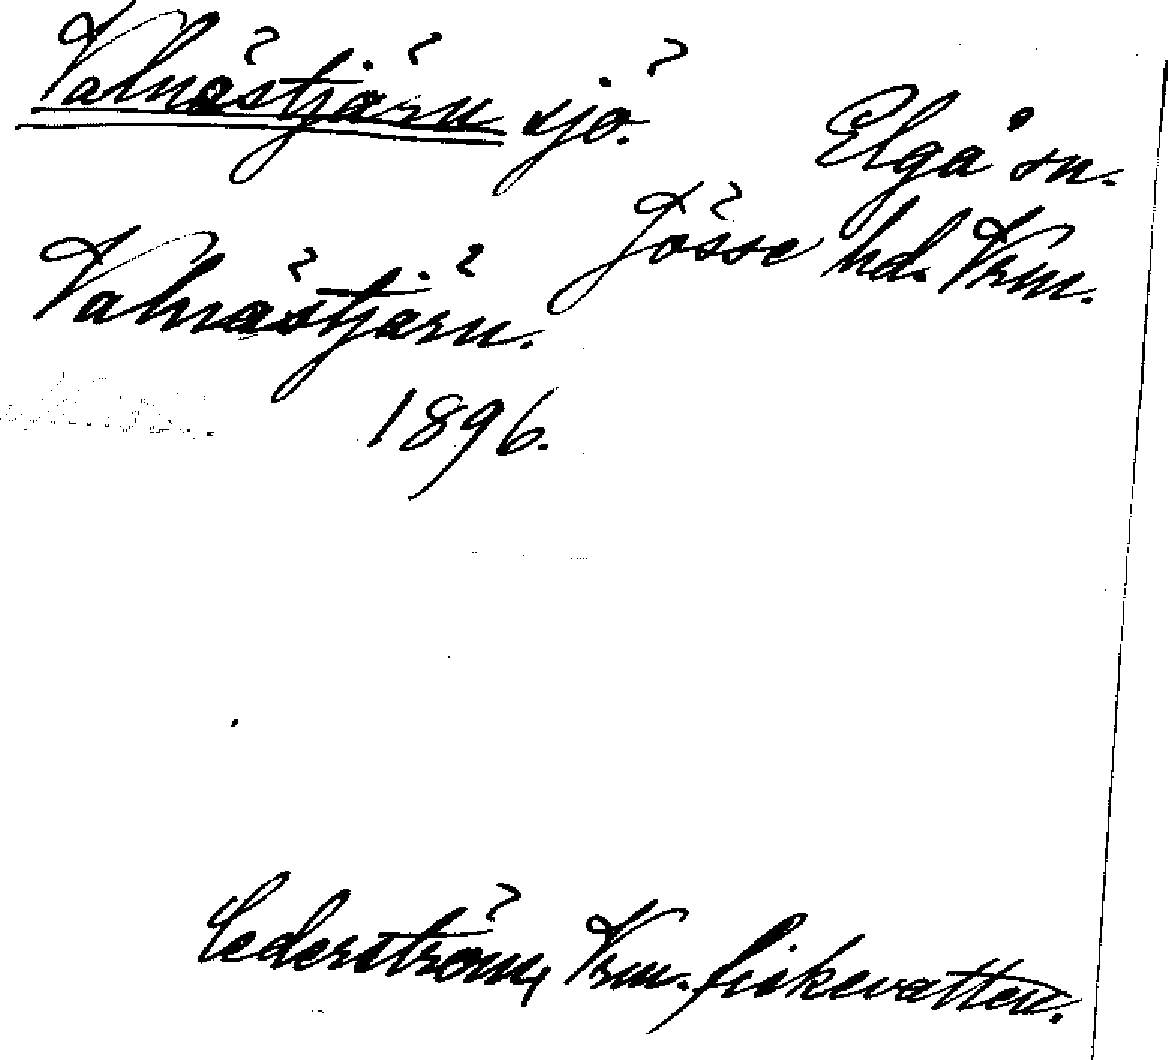 Valnästjärn sjö.
Elgå sn.
Jösse hd. Vrm.
Valnästjärn.
1896.
Cederström, Vrm. fiskevatten.